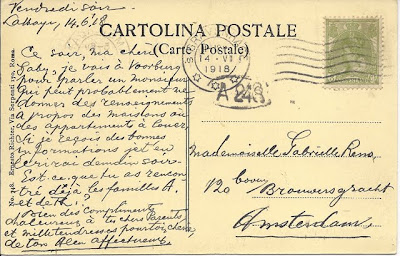 Vendredi soir
Lahaye, 14.6.18
CARTOLINA POSTALE
(Carte Postale)
Ce soir, ma chère
Gaby, je vais à Voorburg
pour parler un monsieur
qui peut probablement me
donner des renseignements
à propos de maisons ou
des appartements à louer.
Si je reçois des bonnes
informations j'et en
écrirai demain soir.
Est-ce que tu as rencon-
tré déjà les familles A.
et de H.?
Bien des Compliments
chaleureux à tes chers Parents
et mille tendresses pour toi, chérie,
de ton Alex affectueux
No. 248. Ernesto Richter, Via Serpenti 170, Roma.
14 VI
1918
A 248
Mademoiselle Gabrielle Reno,
120 boven Brouwersgracht
Amsterdam